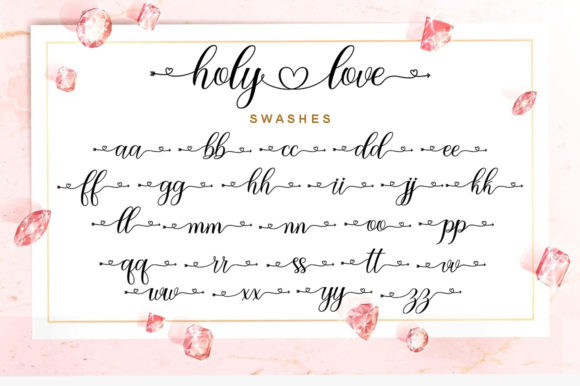 holy love
SWASHES
aa bb cc dd ee
ff gg hh ii jj kk
ll mm nn oo pp
qq rr ss tt vv
ww xx yy zz